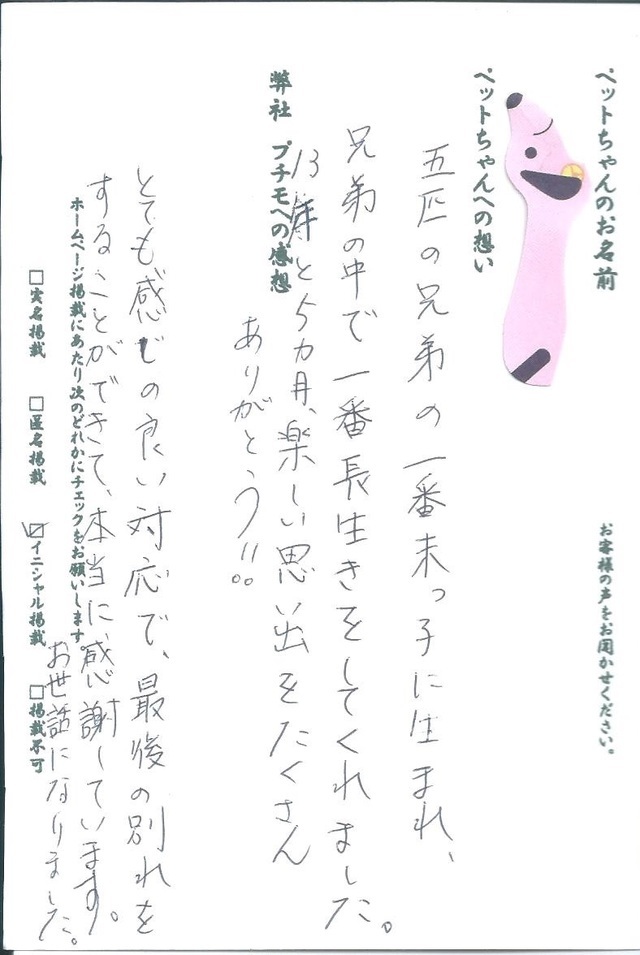 ペットちゃんのお名前
お客様の声をお聞かせください。
ペットちゃんへの想い
五匹の兄弟の一番末っ子に生まれ、
兄弟の中で一番長生きをしてくれました。
13年と5カ月、楽しい思い出をたくさん
ありがとう!!。
弊社 プチモへの感想
とても感じの良い対応で、最後の別れを
することができて、本当に、感謝しています。
お世話になりました。
ホームページ掲載にあたり次のどれかにチェックをお願いします
□実名掲載 □匿名掲載 ☑イニシャル掲載 □掲載不可